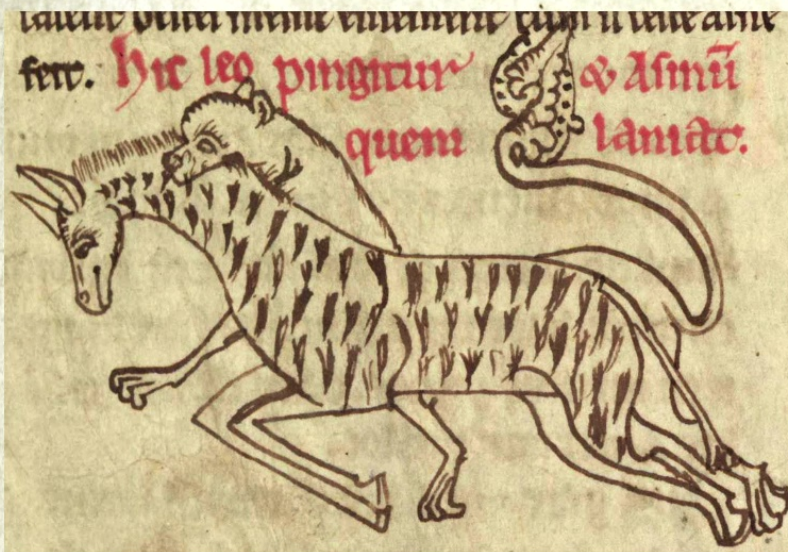 fert. Hic leo pingitur & Asinū
quem laniat.